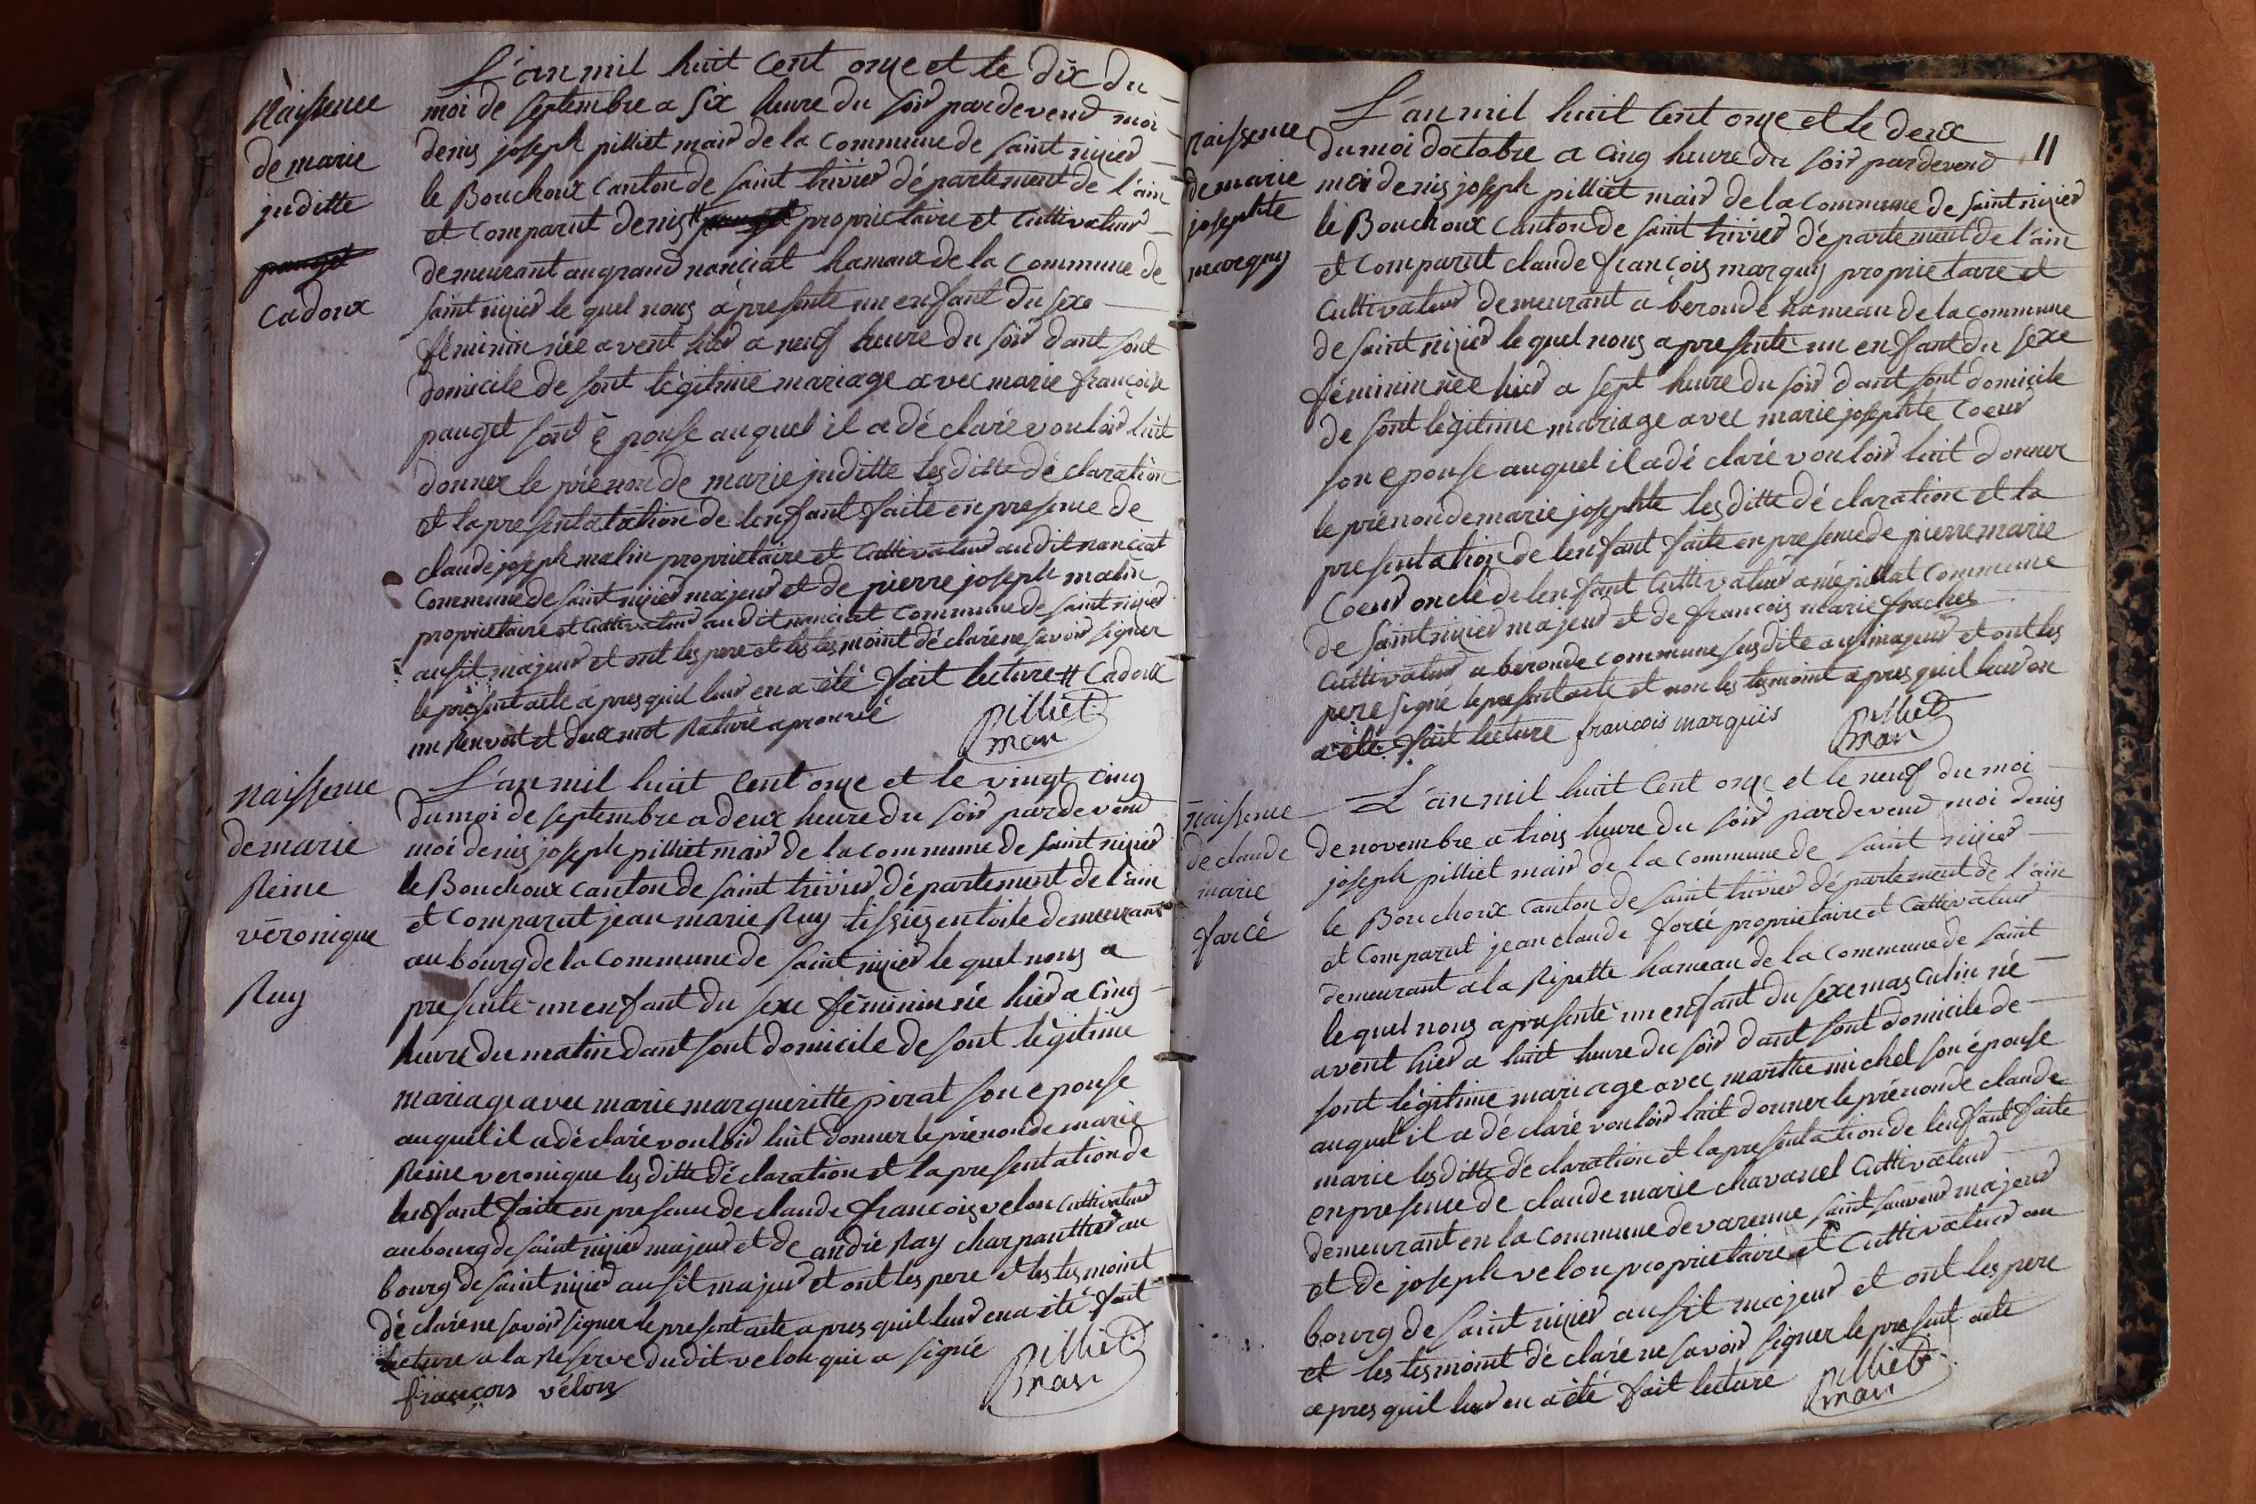 Naissence
de marie
juditte
pauget
Cadoux
L'an mil huit Cent onze et le dix du
moi de septembre a six heure du soir pardevend moi
denis joseph pilliet mair de la Commune de saint nizier
le Bouchoux Canton de saint trivier département de l'ain
et Comparut denis # pauget proprietaire et Cultivateur
demeurant au grand nanciat hamaux de la Commune de
saint nizier le quel nous a présenté un enfant du sexe
féminin née avent hier a neuf heure du soir dant sont
domicile de sont légitime mariage avec marie françoise
pauget sont épouse auquel il a déclaré vouloir luit
donner le prénon de marie juditte lesditte déclaration
et la presentatation de lenfant faite en presence de
claude joseph malin proprietaire et Cultivateur audit nanciat
Commune de saint nizier majeur et de pierre joseph malin
proprietaire et Cultivateur au dit nanciat Commune de saint nizier
ausit majeur et ont les pere et les tesmoint déclaré ne savoir signer
le présent acte a pres quil leur en a été fait lecture # Cadoux
un Renvoit et deux mot Raturé aprouvé
pilliet
mair
Naissence
de marie
Reine
véronique
Ruy
L'an mil huit Cent onze et le vingt cinq
du moi de septembre a deux heure du soir pardevend
moi denis joseph pilliet mair de la Commune de saint nizier
le Bouchoux canton de saint trivier département de l'ain
et Comparut jean marie Ruy tissier en toile demeurant
au bourg de la Commune de saint nizier le quel nous a
presenté un enfant du sexe féminin né hier a cinq
heure du matin dant sont domicile de sont légitime
mariage avec marie margueritte pirat son epouse
auquel il a déclaré vouloir luit donner le prénon de marie
Reine veronique les ditte déclaration et la presentation de
lenfant faite en presence de claude françois velon Cultivateur
au bourg de saint nizier majeur et de andré Ray charpanttier au
bourg de saint nizier ausit majeur et ont les pere et les tesmoint
déclaré ne savoir signer le present acte a pres quil leur en a été fait
lecture a la Reserve du dit velon qui a signé
françois vélon
pilliet
mair
11
Naissence
de marie
josephte
marquis
L'an mil huit Cent onze et le deux
du moi doctobre a cinq heure du soir pardevend
moi denis joseph pilliet mair de la Commune de saint nizier
le Bouchoux Canton de saint trivier département de l'ain
et Comparut claude françois marquis proprietaire et
Cultivateur demeurant a béronde hameau de la commune
de saint nizier le quel nous a presenté un enfant du sexe
féminin née hier a sept heure du soir dant sont domicile
de sont légitime mariage avec marie josephte Coeur
son epouse auquel il a déclaré vouloir luit donner
le prénon de marie josephte lesditte déclaration et la
presentation de lenfant faite en presence de pierre marie
Coeur oncle de lenfant Cultivateur a mépillat Commune
de saint nizier majeur et de françois marie frachet
Cultivateur a béronde commune susdite ausi majeur et ont les
pere signé le present acte et non les tesmoint a pres quil leur en
a été fait lecture
françois marquis
pilliet
mair
Naissence
de claude
marie
farcé
L'an mil huit Cent onze et le neuf du moi
de novembre a trois heure du soir pardevend moi denis
joseph pilliet mair de la Commune de saint nizier
le Bouchoux Canton de saint trivier département de l'ain
et Comparut jean claude forcé proprietaire et Cultivateur
demeurant a la Ripette hameau de la commune de saint
le quel nous a presenté un enfant du sexe masculin né
avent hier a huit heure du soir dant sont domicile de
sont légitime mariage avec marthe michel son épouse
auquel il a déclaré vouloir luit donner le prénon de claude
marie les ditte déclaration et la presentation de lenfant faite
en presence de claude marie chavanel Cultivateur
demeurant en la Commune de varenne saint sauveur majeur
et de joseph velon proprietaire et Cultivateur au
bourg de saint nizier ausit majeur et ont les pere
et les tesmoint déclaré ne savoir signer le present acte
a pres quil leur en a été fait lecture
pilliet
mair